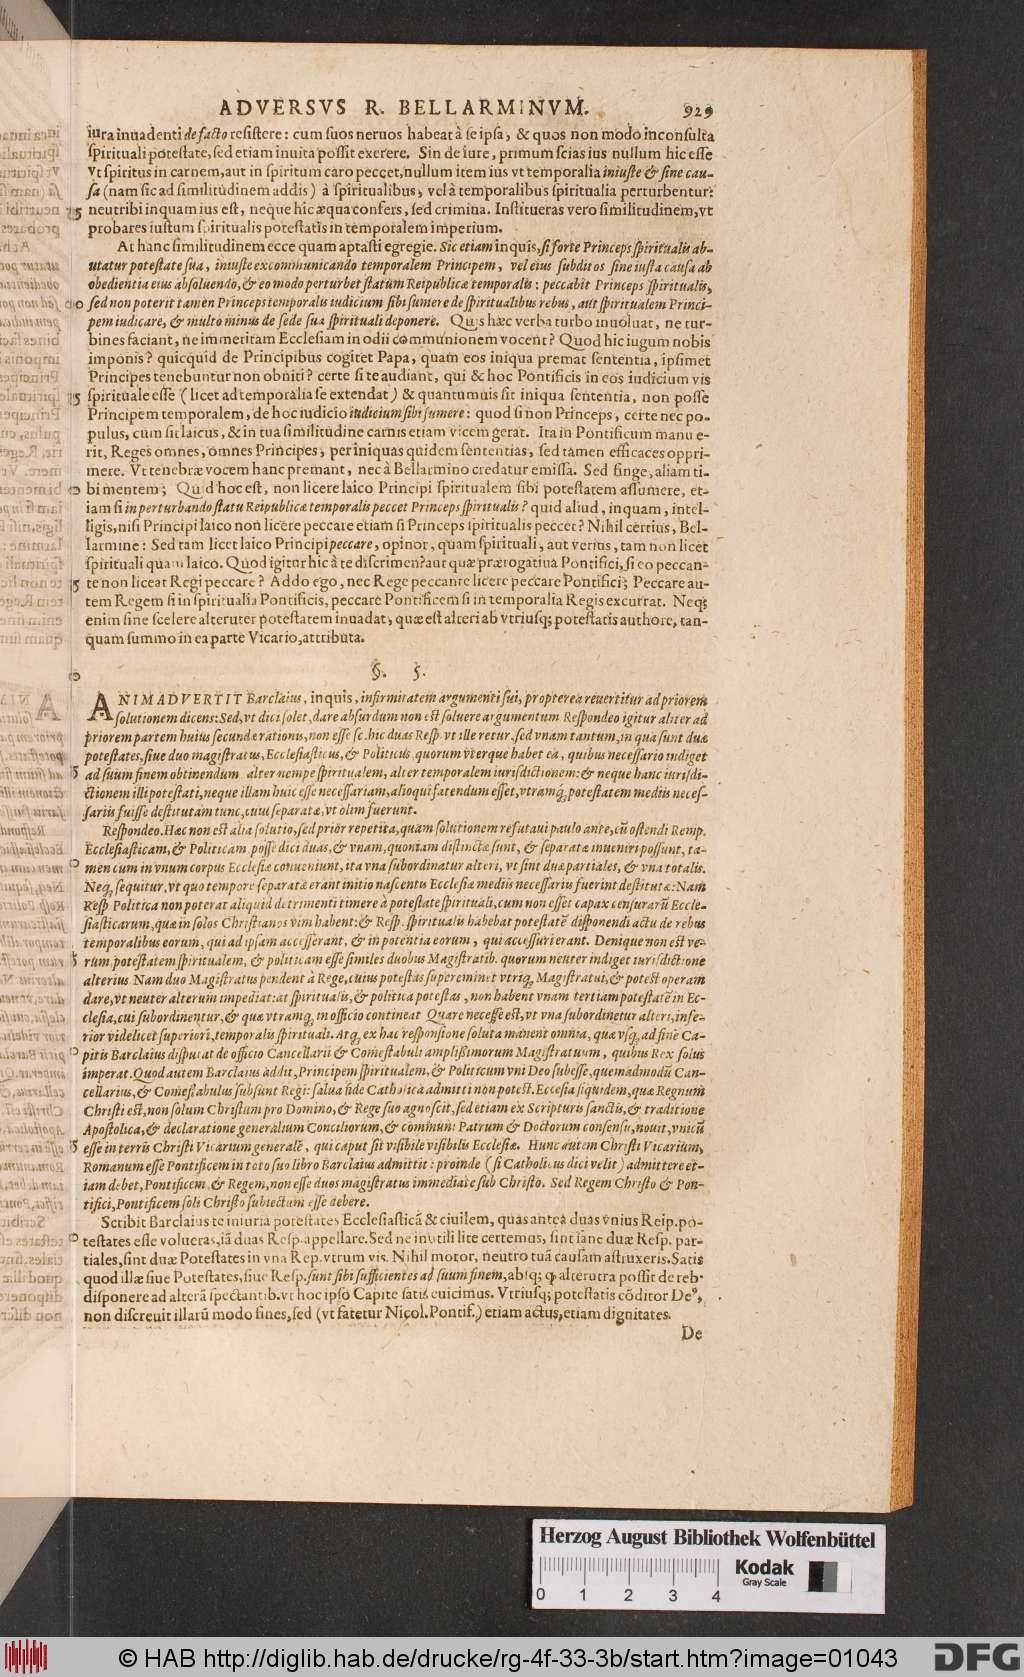 ADVERSVS R. BELLARMINVM. 929
iura inuadenti de facto resistere: cum suos neruos habeat à se ipsa, & quos non modo inconsulta
spirituali potestate, sed etiam inuita possit exerere. Sin de iure, primum scias ius nullum hic esse
vt spiritus in carnem, aut in spiritum caro peccet, nullum item ius vt temporalia iniuste & sine cau-
sa (nam sic ad similitudinem addis) à spiritualibus, vel à temporalibus spiritualia perturbentur:
neutri bi inquam ius est, neque hic æqua confers, sed crimina. Institueras vero similitudinem, vt
probares iustum spiritualis potestatis in temporalem imperium.
At hanc similitudinem ecce quam aptasti egregie. Sic etiam inquis, si forte Princeps spiritualis ab-
utatur potestate sua, iniuste excommunicando temporalem Principem, vel eius subditos sine iusta causa ab
obedientia eius absoluendo, & eo modo perturbet statum Reipublicæ temporalis: peccabit Princeps spiritualis,
sed non poterit tamen Princeps temporalis iudicium sibi sumere de spiritualibus rebus, aut spiritualem Princi-
pem iudicare, & multo minus de sede sua spirituali deponere. Quis hæc verba turbo inuoluat, ne tur-
bines faciant, ne immeritam Ecclesiam in odii communionem vocent? Quod hic iugum nobis
imponis? quicquid de Principibus cogitet Papa, quam eos iniqua premat sententia, ipsimet
Principes tenebuntur non obniti? certe si te audiant, qui & hoc Pontificis in eos iudicium vis
spirituale esse (licet ad temporalia se extendat) & quantumuis sit iniqua sententia, non posse
Principem temporalem, de hoc iudicio iudicium sibi sumere: quod si non Princeps, certe nec po-
pulus, cum sit laicus, & in tua similitudine carnis etiam vicem gerat. Ita in Pontificum manu e-
rit, Reges omnes, omnes Principes, per iniquas quidem sententias, sed tamen efficaces oppri-
mere. Vt tenebræ vocem hanc premant, nec à Bellarmino credatur emissa. Sed finge, aliam ti-
bi mentem; Quid hoc est, non licere laico Principi spiritualem sibi potestatem assumere, et-
iam si in perturbando statu Reipublicæ temporalis peccet Princeps spiritualis? quid aliud, inquam, intel-
ligis, nisi Principi laico non licere peccare etiam si Princeps spiritualis peccet? Nihil certius, Bel-
larmine: Sed tam licet laico Principi peccare, opinor, quam spirituali, aut verius, tam non licet
spirituali quam laico. Quod igitur hic à te discrimen? aut quæ prærogatiua Pontifici, si eo peccan-
te non liceat Regi peccare? Addo ego, nec Rege peccante licere peccare Pontifici; Peccare au-
tem Regem si in spiritualia Pontificis, peccare Pontificem si in temporalia Regis excurrat. Neq;
enim sine scelere alteruter potestatem inuadat, quæ est alteri ab vtriusq; potestatis authore, tan-
quam summo in ea parte Vicario, attributa.
§. 5.
ANIMADVERTIT Barclaius, inquis, infirmitatem argumenti sui, propterea reuertitur ad priorem
solutionem dicens: Sed, vt dici solet, dare absurdum non est soluere argumentum Respondeo igitur aliter ad
priorem partem huius secundæ rationis, non esse sc. hic duas Resp. vt ille retur, sed vnam tantum, in qua sunt duæ
potestates, siue duo magistratus, Ecclesiasticus, & Politicus quorum vterque habet ea, quibus necessario indiget
ad suum finem obtinendum alter nempe spiritualem, alter temporalem iurisdictionem: & neque hanc iurisdi-
ctionem illi potestati, neque illam huic esse necessariam, alioqui fatendum esset, vtramq; potestatem mediis neces-
sariis fuisse destitutam tunc, cum separatæ, vt olim fuerunt.
Respondeo. Hæc non est alia solutio, sed prior repetita, quam solutionem refutaui paulo ante, cũ ostendi Remp.
Ecclesiasticam, & Politicam posse dici duas, & vnam, quoniam distinctæ sunt, & separatæ inueniri possunt, ta-
men cum in vnum corpus Ecclesiæ conueniunt, ita vna subordinatur alteri, vt sint duæ partiales, & vna totalis.
Neq; sequitur, vt quo tempore separatæ erant initio nascentis Ecclesiæ mediis necessariis fuerint destitutæ: Nam
Resp Politica non poterat aliquid detrimenti timere à potestate spirituali, cum non esset capax censurarũ Eccle-
siasticarum, quæ in solos Christianos vim habent: & Resp. spiritualis habebat potestatẽ disponendi actu de rebus
temporalibus eorum, qui ad ipsam accesserant, & in potentia eorum, qui accessuri erant. Denique non est ve-
rum potestatem spiritualem, & politicam esse similes duobus Magistratib. quorum neuter indiget iurisdictione
alterius Nam duo Magistratus pendent à Rege, cuius potestas supereminet vtriq; Magistratui, & potest operam
dare, vt neuter alterum impediat: at spiritualis, & politica potestas, non habent vnam tertiam potestatẽ in Ec-
clesia, cui subordinentur, & quæ vtramq; in officio contineat Quare necesse est, vt vna subordinetur alteri, infe-
rior videlicet superiori, temporalis spirituali. Atq; ex hac responsione soluta manent omnia, quæ vsq; ad finẽ Ca-
pitis Barclaius disputat de officio Cancellarii & Comestabuli amplissimorum Magistratuum, quibus Rex solus
imperat. Quod autem Barclaius addit, Principem spiritualem, & Politicum vni Deo subesse, quemadmodũ Can-
cellarius, & Comestabulus subsunt Regi: salua fide Catholica admitti non potest. Ecclesia siquidem, quæ Regnum
Christi est, non solum Christum pro Domino, & Rege suo agnoscit, sed etiam ex Scripturis sanctis, & traditione
Apostolica, & declaratione generalium Conciliorum, & communi Patrum & Doctorum consensu, nouit, vnicũ
esse in terris Christi Vicarium generalẽ, qui caput sit visibile visibilis Ecclesiæ. Hunc autem Christi Vicarium,
Romanum esse Pontificem in toto suo libro Barclaius admittit: proinde (si Catholicus dici velit) admittere et-
iam debet, Pontificem & Regem, non esse duos magistratus immediate sub Christo. Sed Regem Christo & Pon-
tifici, Pontificem soli Christo subiectum esse debere.
Scribit Barclaius te iniuria potestates Ecclesiasticã & ciuilem, quas antea duas vnius Reip. po-
testates esse volueras, iã duas Resp. appellare. Sed ne inutili lite certemus, sint sane duæ Resp. par-
tiales, sint duæ Potestates in vna Rep. vtrum vis. Nihil motor, neutro tuã causam astruxeris. Satis
quod illæ siue Potestates, siue Resp. sunt sibi sufficientes ad suum finem, absq; q̃ alterutra possit de reb.
disponere ad alterã spectantib. vt hoc ipso Capite satis euicimus. Vtriusq; potestatis cõditor De⁹,
non discreuit illarũ modo fines, sed (vt fatetur Nicol. Pontif.) etiam actus, etiam dignitates.
De
Herzog August Bibliothek Wolfenbüttel
0 1 2 3 4
Kodak
Gray Scale
© HAB http://diglib.hab.de/drucke/rg-4f-33-3b/start.htm?image=01043
DFG